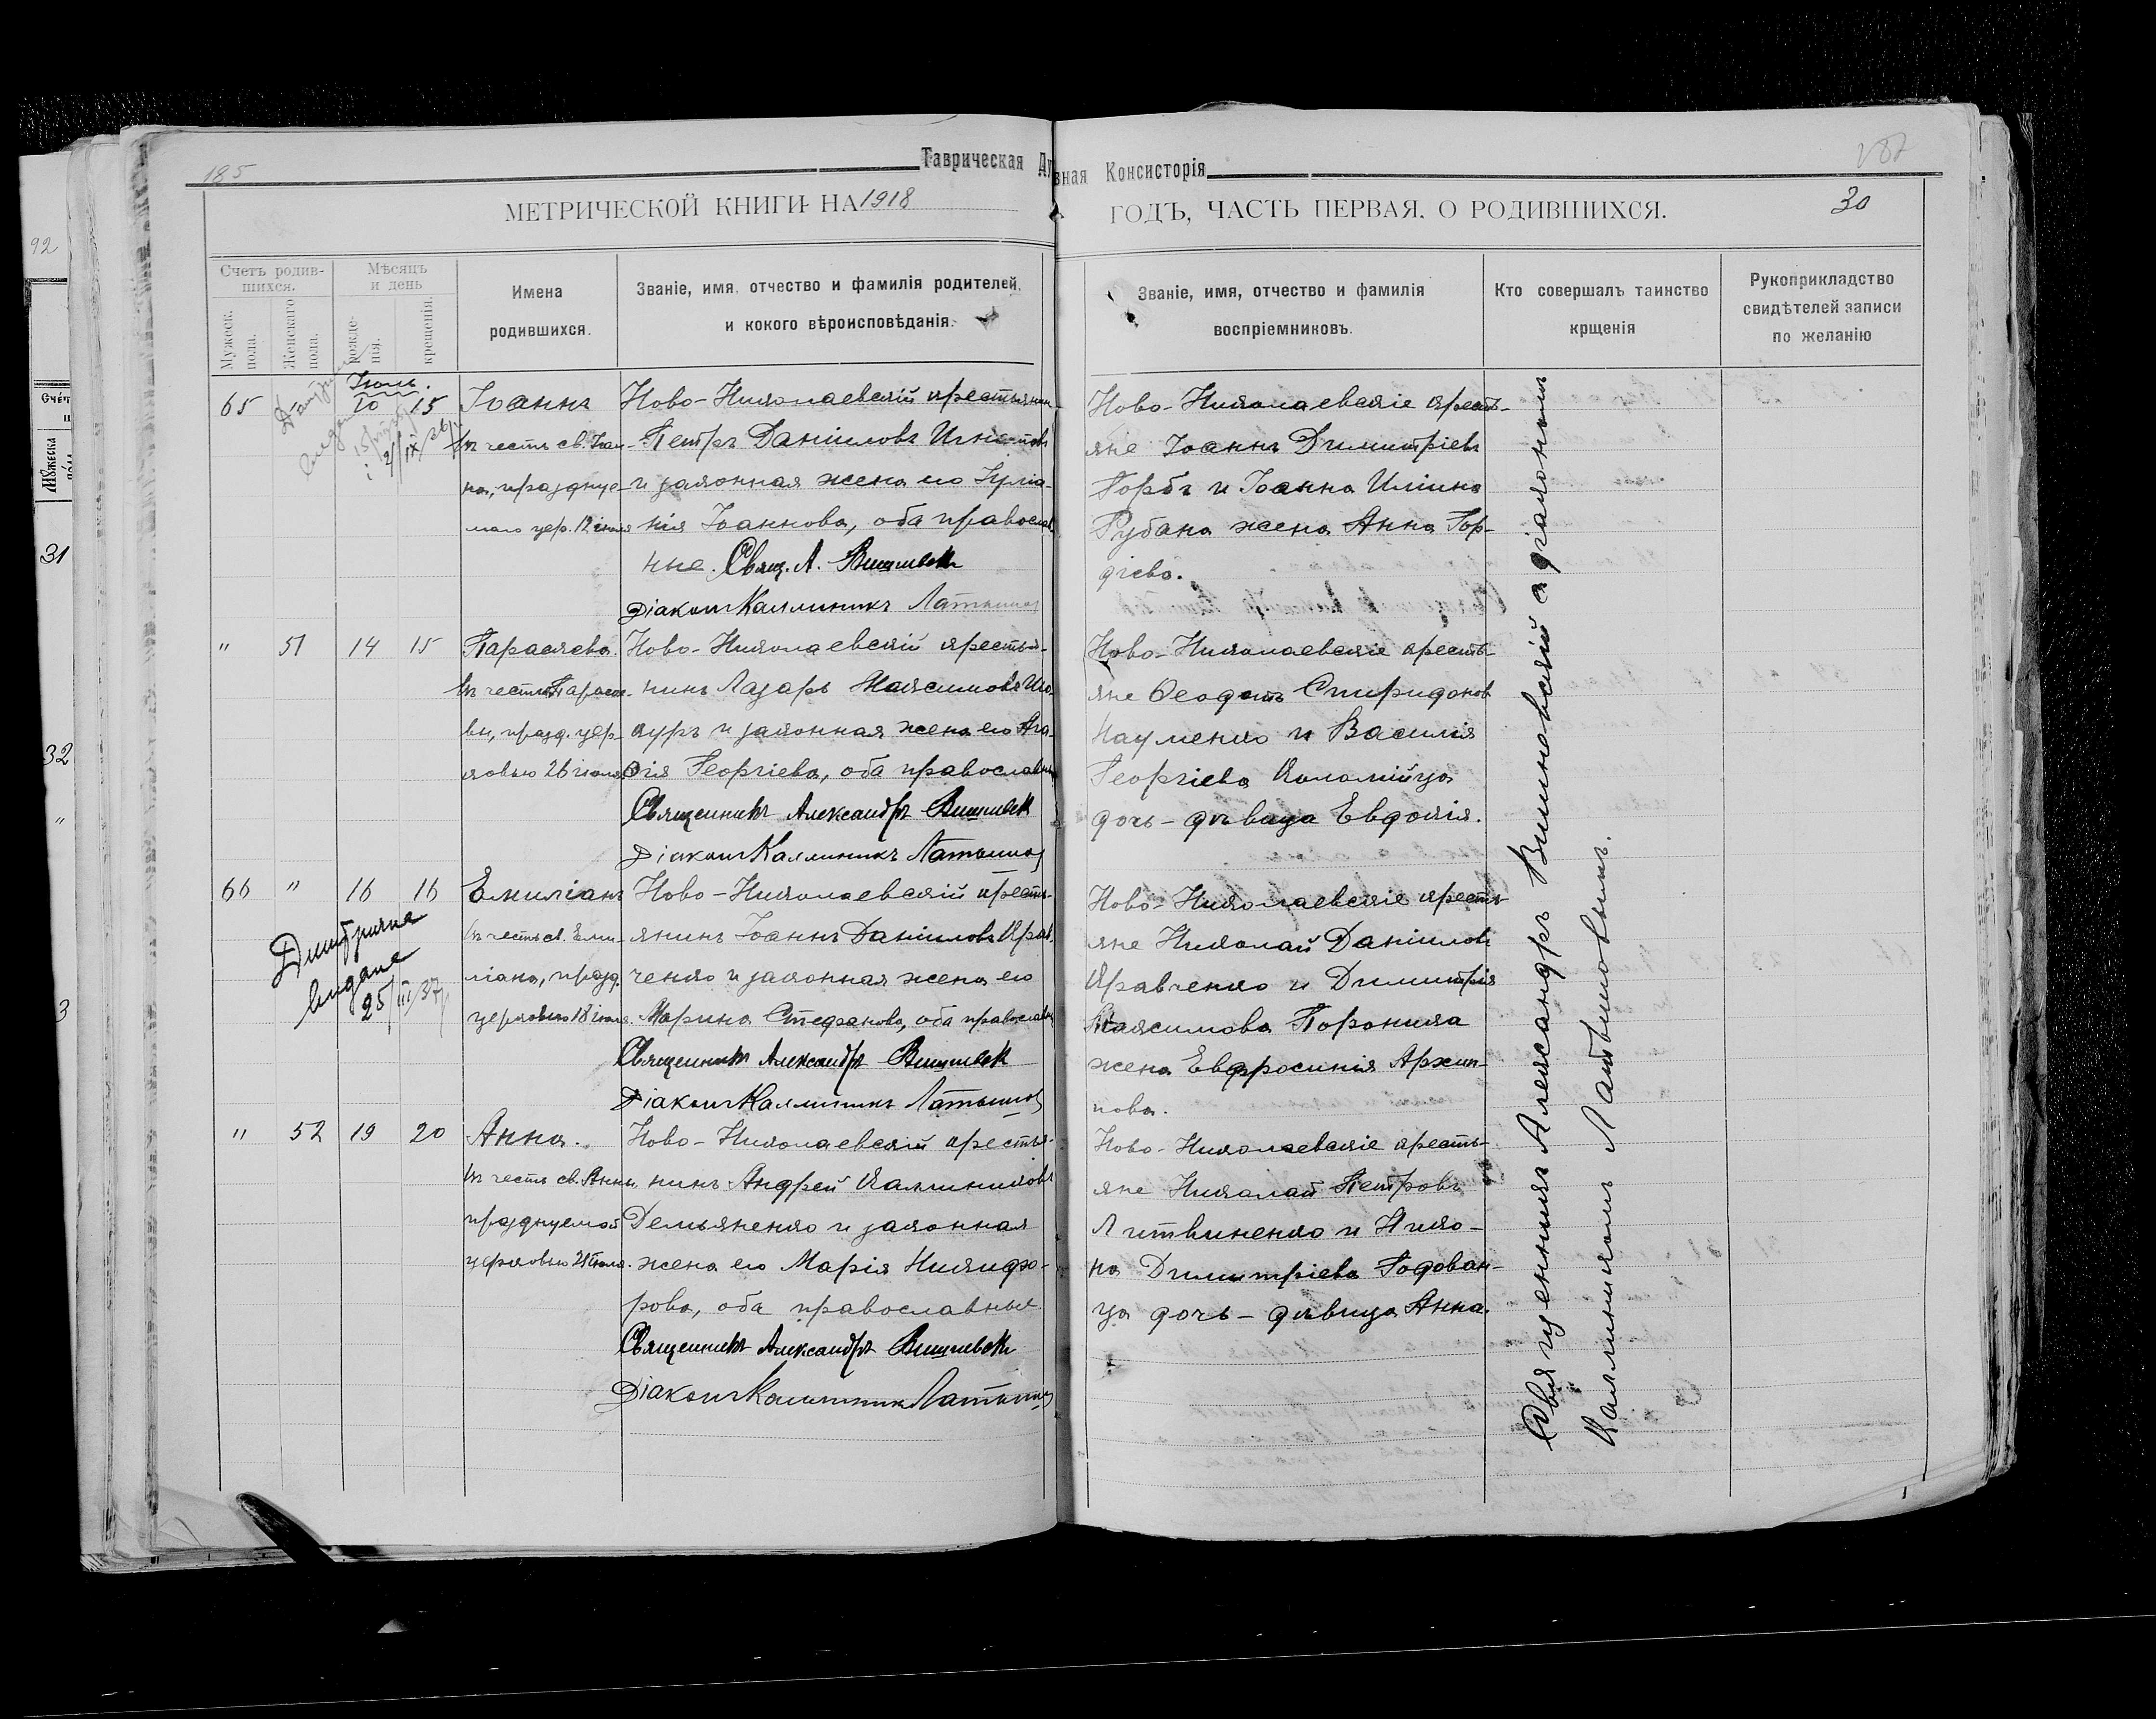 185
Таврическая Ду
вная Консисторія
187
МЕТРИЧЕСКОЙ КНИГИ НА 1918
ГОДЪ, ЧАСТЬ ПЕРВАЯ, О РОДИВШИХСЯ.
30
Счетъ родив-
шихся.
Мужеск. пола.
Женскаго пола.
Мѣсяцъ
и день
рожде-
нія.
крещенія.
Имена
родившихся.
Званіе, имя, отчество и фамилія родителей,
и кокого вѣроисповѣданія.
Званіе, имя, отчество и фамилія
воспріемниковъ.
Кто совершалъ таинство
крщенія
Рукоприкладство
свидѣтелей записи
по желанію
Іюль.
65 " 10 15
Іоаннъ
въ честь св. Іоан-
на, празднуе-
маго цер. 12 іюля
Ново-Николаевскій крестьянин
Петръ Даніиловъ
и законная жена его Іуліа-
нія Іоаннова, оба православ-
ные. Свящ. А. Вишневск
Діаконъ Каллиникъ Латышов
Ново-Николаевскіе кресть-
яне Іоаннъ Димитріевъ
Горбъ и Іоанна Иліина
Рубана жена Анна Гор-
діева.
" 51 14 15
Параскева.
въ честь Параске-
вы, празд. цер-
ковью 26 іюля
Ново-Николаевскій крестья-
нинъ Лазарь Максимовъ
и законная жена его Ага-
ѳія Георгіева, оба православн
Священникъ Александръ Вишневск
Діаконъ Каллиникъ Латышов
Ново-Николаевскіе кресть-
яне Ѳеодотъ Спиридонов
Науменко и Василія
Георгіева Коломійца
дочь - дѣвица Евдокія.
66 " 16 16
Емиліанъ
въ честь св. Еми-
ліана, празд.
церковью 18 іюля.
Ново-Николаевскій кресть-
янинъ Іоаннъ Даніиловъ Крав-
ченко и законная жена его
Марина Стефанова, оба православн
Священникъ Александръ Вишневск
Діаконъ Каллиникъ Латышов
Ново-Николаевскіе кресть-
яне Николай Даніиловъ
Кравченко и Димитрія
Максимова Пороника
жена Евфросинія Архип-
пова.
видане
25/III 37
" 52 19 20
Анна.
въ честь св. Анны
празднуемой
церковью 25 іюля.
Ново-Николаевскій крестья-
нинъ Андрей Каллиниковъ
Демьяненко и законная
жена его Марія Никифо-
рова, оба православные.
Священникъ Александръ Вишневск
Діаконъ Каллиникъ Латышов
Ново-Николаевскіе кресть-
яне Николай Петровъ
Литвиненко и Нико-
на Димитріева Годован-
ца дочь - дѣвица Анна.
Священникъ Александръ Вишневскій с діакономъ
Каллиникомъ Латышовымъ.
92
31
32
3